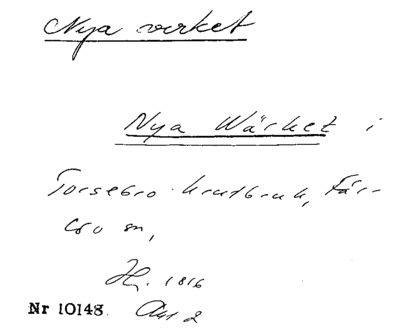 Nya verket
Nya Wärket i
Torsebro krutbruk, Fär-
löv sn,
Hj. 1816
Nr 10148. Avs 2